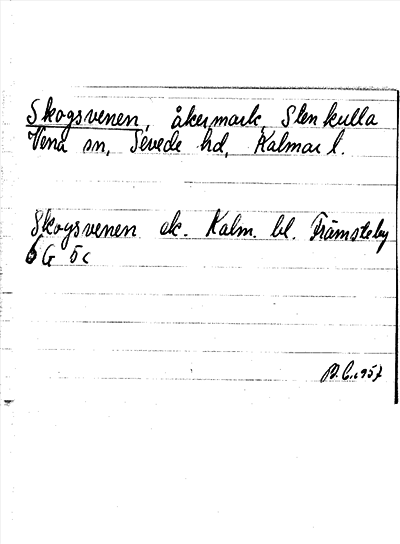 Skogsvenen, åkermark, Stenkulla
Vena sn, Sevede hd, Kalmar l.
Skogsvenen ek. Kalm. bl. Främsteby
6 G ö c
1957